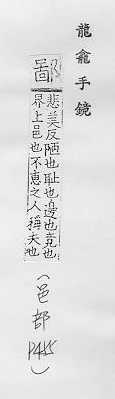 龍龕手鏡
鄙
悲美反陋也耻也邊也竟也
界上邑也不恵之人稱夫也
(邑部 P455)